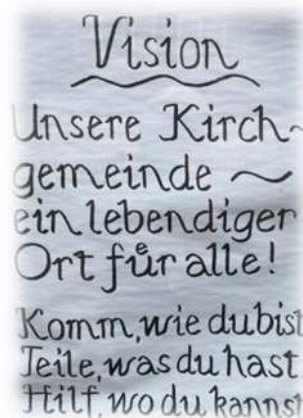 Vision
Unsere Kirch-
gemeinde ~
ein lebendiger
Ort für alle!
Komm, wie du bist
Teile, was du hast
Hilf, wo du kannst